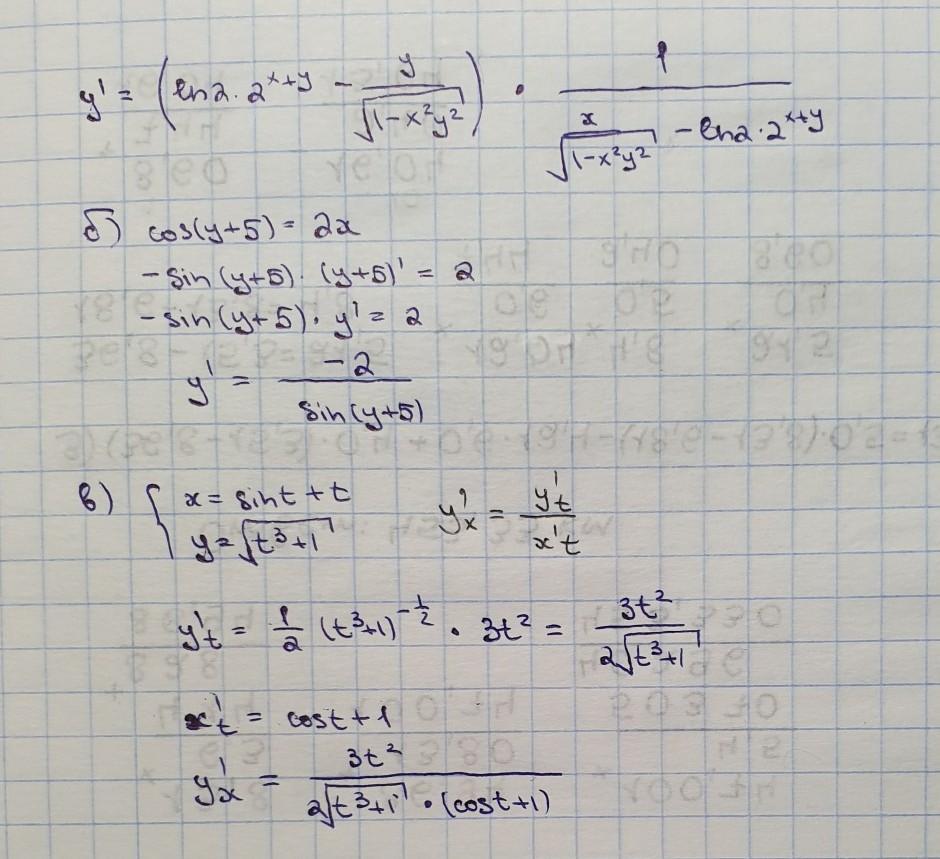 y' = (ln2·2^(x+y) − y/√(1−x²y²)) · 1/(x/√(1−x²y²) − ln2·2^(x+y))
б) cos(y+5) = 2x
−sin(y+5)·(y+5)' = 2
−sin(y+5)·y' = 2
y' = −2/sin(y+5)
в) { x = sint + t
y = √(t³+1) y'x = y't/x't
y't = 1/2 (t³+1)^(−1/2) · 3t² = 3t²/(2√(t³+1))
x't = cost + 1
y'x = 3t²/(2√(t³+1) · (cost+1))